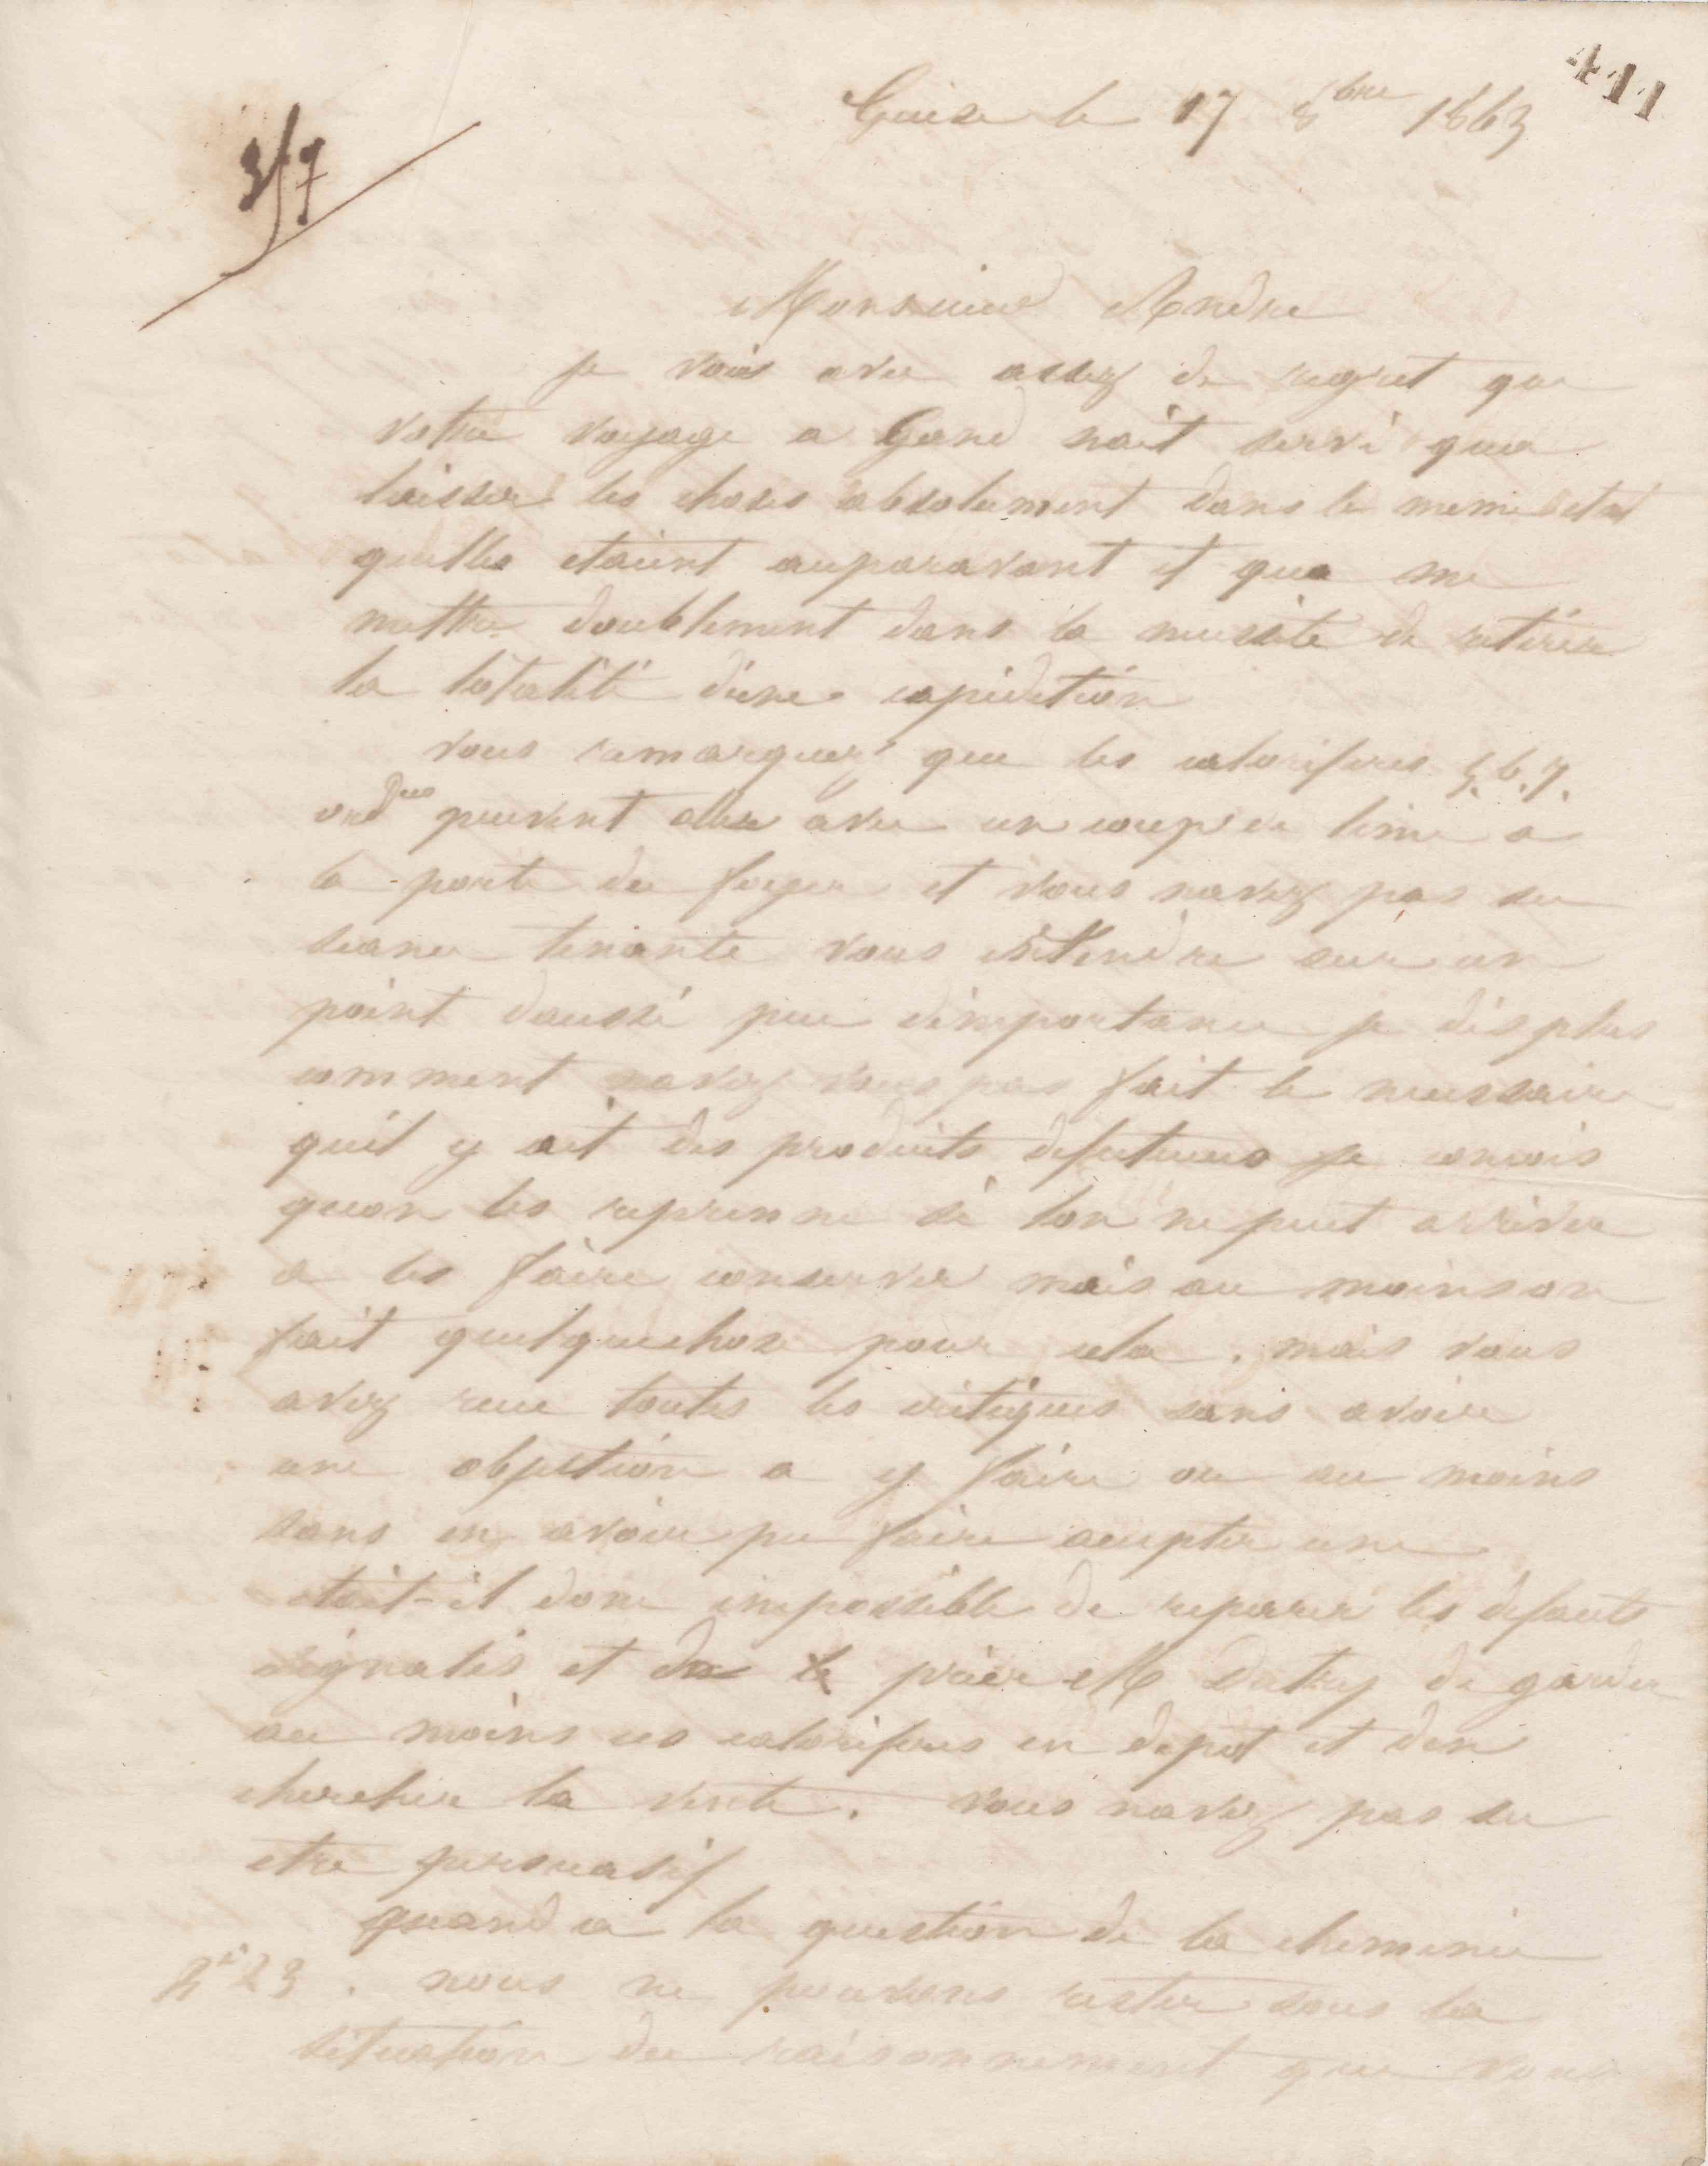 411
Guise le 17 8bre 1863
3/7
Monsieur Andre
je vois avec assez de regret que
votre voyage a Gand nait servi qua
laisser les choses absolument dans le meme etat
quelles etaient auparavant et qua me
mettre doublement dans la necessite de retirer
la totalité dune expedition
vous remarquez que les calorifères 5. 6. 7.
peuvent aller avec un coup de lime a
la porte du foyer et vous navez pas su
seance tenante vous entendre sur un
point daussi peu dimportance je dis plus
comment navez vous pas fait le necessaire
quil y ait des produits defectueux je concois
quon les reprenne si lon ne peut arriver
a les faire conserver mais au moins on
fait quelquechose pour cela. mais vous
avez recu toutes les critiques sans avoir
une objection a y faire ou au moins
sans en avoir pu faire accepter une
etait-il donc impossible de reparer les defauts
signales et de prier M de garder
au moins ces calorifères en depot et den
chercher la vente. vous navez pas su
etre persuasif
quand a la question de la cheminée
n° 23. nous ne pouvons rester sous la
situation du raisonnement que vous